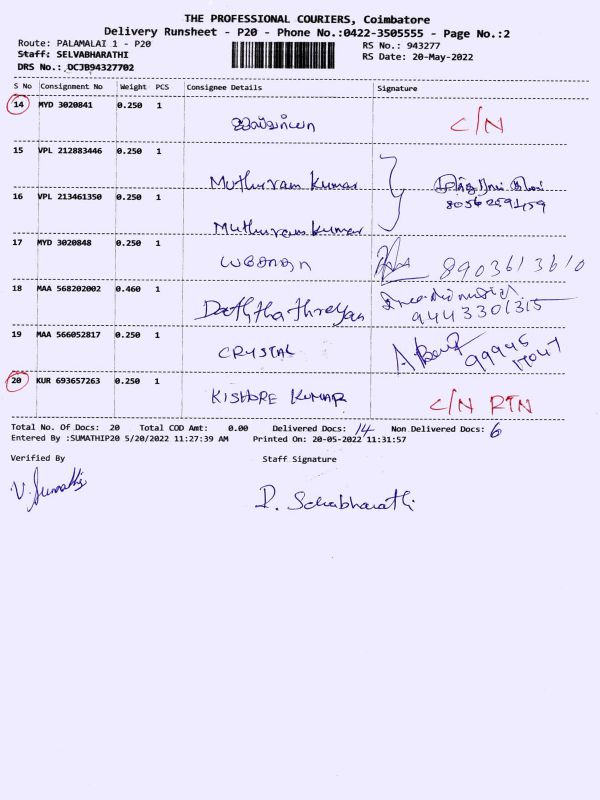 THE PROFESSIONAL COURIERS, Coimbatore
Delivery Runsheet - P20 - Phone No.:0422-3505555 - Page No.:2
Route: PALAMALAI 1 - P20 RS No.: 943277
Staff: SELVABHARATHI RS Date: 20-May-2022
DRS No.: OCJB94327702
S No Consignment No Weight PCS Consignee Details Signature
14 MYD 3020841 0.250 1
C/N
15 VPL 212883446 0.250 1
Muthuram Kumar
16 VPL 213461350 0.250 1
Muthuram Kumar
17 MYD 3020848 0.250 1
8903613610
18 MAA 568202002 0.460 1
Daththathreyan
9443301315
19 MAA 566052817 0.250 1
CRYSTAL
20 KUR 693657263 0.250 1
KISHORE KUMAR C/N RTN
Total No. Of Docs: 20 Total COD Amt: 0.00 Delivered Docs: 14 Non Delivered Docs: 6
Entered By :SUMATHIP20 5/20/2022 11:27:39 AM Printed On: 20-05-2022 11:31:57
Verified By Staff Signature
V. Sumathi